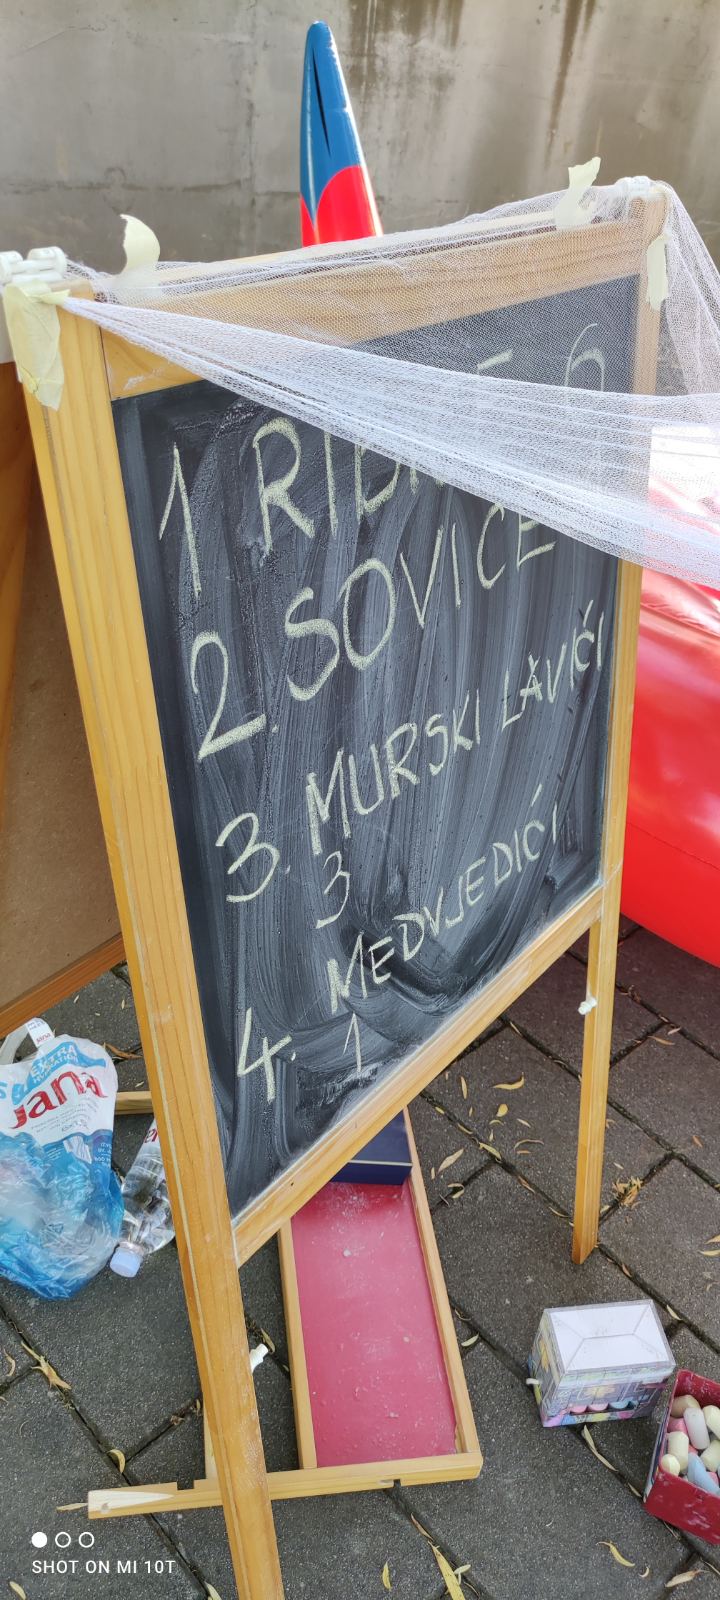 1
2. SOVICE
3. MURSKI LAVIĆI
3
4. MEDVJEDIĆI
1
EXTRA
Jana
SHOT ON MI 10T